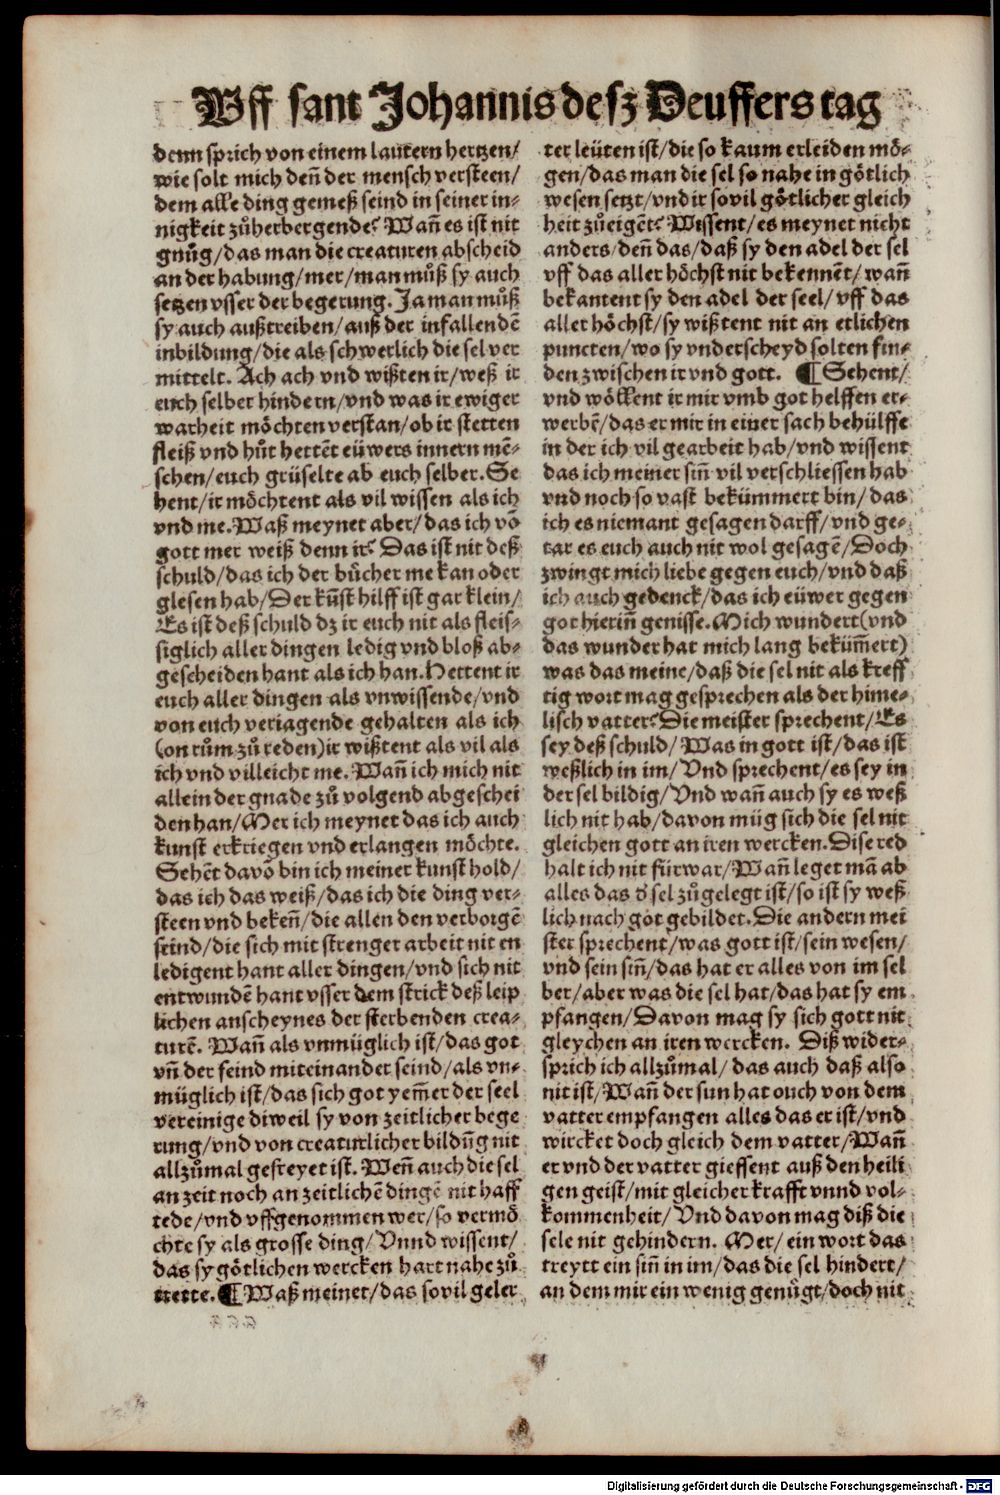 Vff sant Johannis desz Deuffers tag
denn sprich von einem lautern hertzen/
wie solt mich deñ der mensch versteen/
dem alle ding gemeß seind in seiner in-
nigkeit zůherbergende? Wañ es ist nit
gnůg/das man die creaturen abscheid
an der habung/mer/man můß sy auch
setzen vsser der begerung. Ja man můß
sy auch außtreiben/auß der infallendẽ
inbildung/die als schwerlich die sel ver
mittelt. Ach ach vnd wißten ir/weß ir
euch selber hindern/vnd was ir ewiger
warheit möchten verstan/ob ir stetten
fleiß vnd hůt hettẽt eüwers innern mẽ-
schen/euch grüselte ab euch selber. Se
hent/ir möchtent als vil wissen als ich
vnd me. Waß meynet aber/das ich võ
gott mer weiß denn ir? Das ist nit deß
schuld/das ich der bücher me kan oder
glesen hab/Der kũst hilff ist gar klein/
Es ist deß schuld dz ir euch nit als fleis-
siglich aller dingen ledig vnd bloß ab-
gescheiden hant als ich han. Hettent ir
euch aller dingen als vnwissende/vnd
von euch veriagende gehalten als ich
(on rům zů reden)ir wißtent als vil als
ich vnd villeicht me. Wañ ich mich nit
allein der gnade zů volgend abgeschei
den han/Mer ich meynet das ich auch
kunst erkriegen vnd erlangen möchte.
Sehẽt davõ bin ich meiner kunst hold/
das ich das weiß/das ich die ding ver-
steen vnd bekeñ/die allen den verborgẽ
seind/die sich mit strenger arbeit nit en
ledigent hant aller dingen/vnd sich nit
entwundẽ hant vsser dem strick deß leip
lichen anscheynes der sterbenden crea-
turẽ. Wañ als vnmüglich ist/das got
vñ der feind miteinander seind/als vn-
müglich ist/das sich got yem̃er der seel
vereinige diweil sy von zeitlicher bege
rung/vnd von creaturlicher bildũg nit
allzůmal gefreyet ist. Weñ auch die sel
an zeit noch an zeitlichẽ dingẽ nit haff
tede/vnd vffgenommen wer/so vermö
chte sy als grosse ding/Vnnd wissent/
das sy götlichen wercken hart nahe zů
trette. ¶ Waß meinet/das sovil geler
ter leüten ist/die so kaum erleiden mö-
gen/das man die sel so nahe in götlich
wesen setzt/vnd ir sovil götlicher gleich
heit zůeigẽt? Wissent/es meynet nicht
anders/deñ das/daß sy den adel der sel
vff das aller höchst nit bekennẽt/wañ
bekantent sy den adel der seel/vff das
aller höchst/sy wißtent nit an etlichen
puncten/wo sy vnderscheyd solten fin-
den zwischen ir vnd gott. ¶ Sehent/
vnd wöllent ir mir vmb got helffen er-
werbẽ/das er mir in einer sach behülffe
in der ich vil gearbeit hab/vnd wissent
das ich meiner siñ vil verschliessen hab
vnd noch so vast bekümmert bin/das
ich es niemant gesagen darff/vnd ge-
tar es euch auch nit wol gesagẽ/Doch
zwingt mich liebe gegen euch/vnd daß
ich auch gedenck/das ich eüwer gegen
got hieriñ genisse. Mich wundert(vnd
das wunder hat mich lang beküm̃ert)
was das meine/daß die sel nit als kreff
tig wort mag gesprechen als der hime-
lisch vatter? Die meister sprechent/Es
sey deß schuld/Was in gott ist/das ist
weßlich in im/Vnd sprechent/es sey in
der sel bildig/Vnd wañ auch sy es weß
lich nit hab/davon müg sich die sel nit
gleichen gott an iren wercken. Dise red
halt ich nit für war/Wañ leget mã ab
alles das d̕ sel zůgelegt ist/so ist sy weß
lich nach got gebildet. Die andern mei
ster sprechent/was gott ist/sein wesen/
vnd sein siñ/das hat er alles von im sel
ber/aber was die sel hat/das hat sy em
pfangen/Davon mag sy sich gott nit
gleychen an iren wercken. Diß wider-
sprich ich allzůmal/das auch daß also
nit ist/Wañ der sun hat ouch von dem
vatter empfangen alles das er ist/vnd
wircket doch gleich dem vatter/Wañ
er vnd der vatter giessent auß den heili
gen geist/mit gleicher krafft vnnd vol-
kommenheit/Vnd davon mag diß die
sele nit gehindern. Mer/ein wort das
treytt ein siñ in im/das die sel hindert/
an dem mir ein wenig genůgt/doch nit
Digitalisierung gefördert durch die Deutsche Forschungsgemeinschaft - DFG